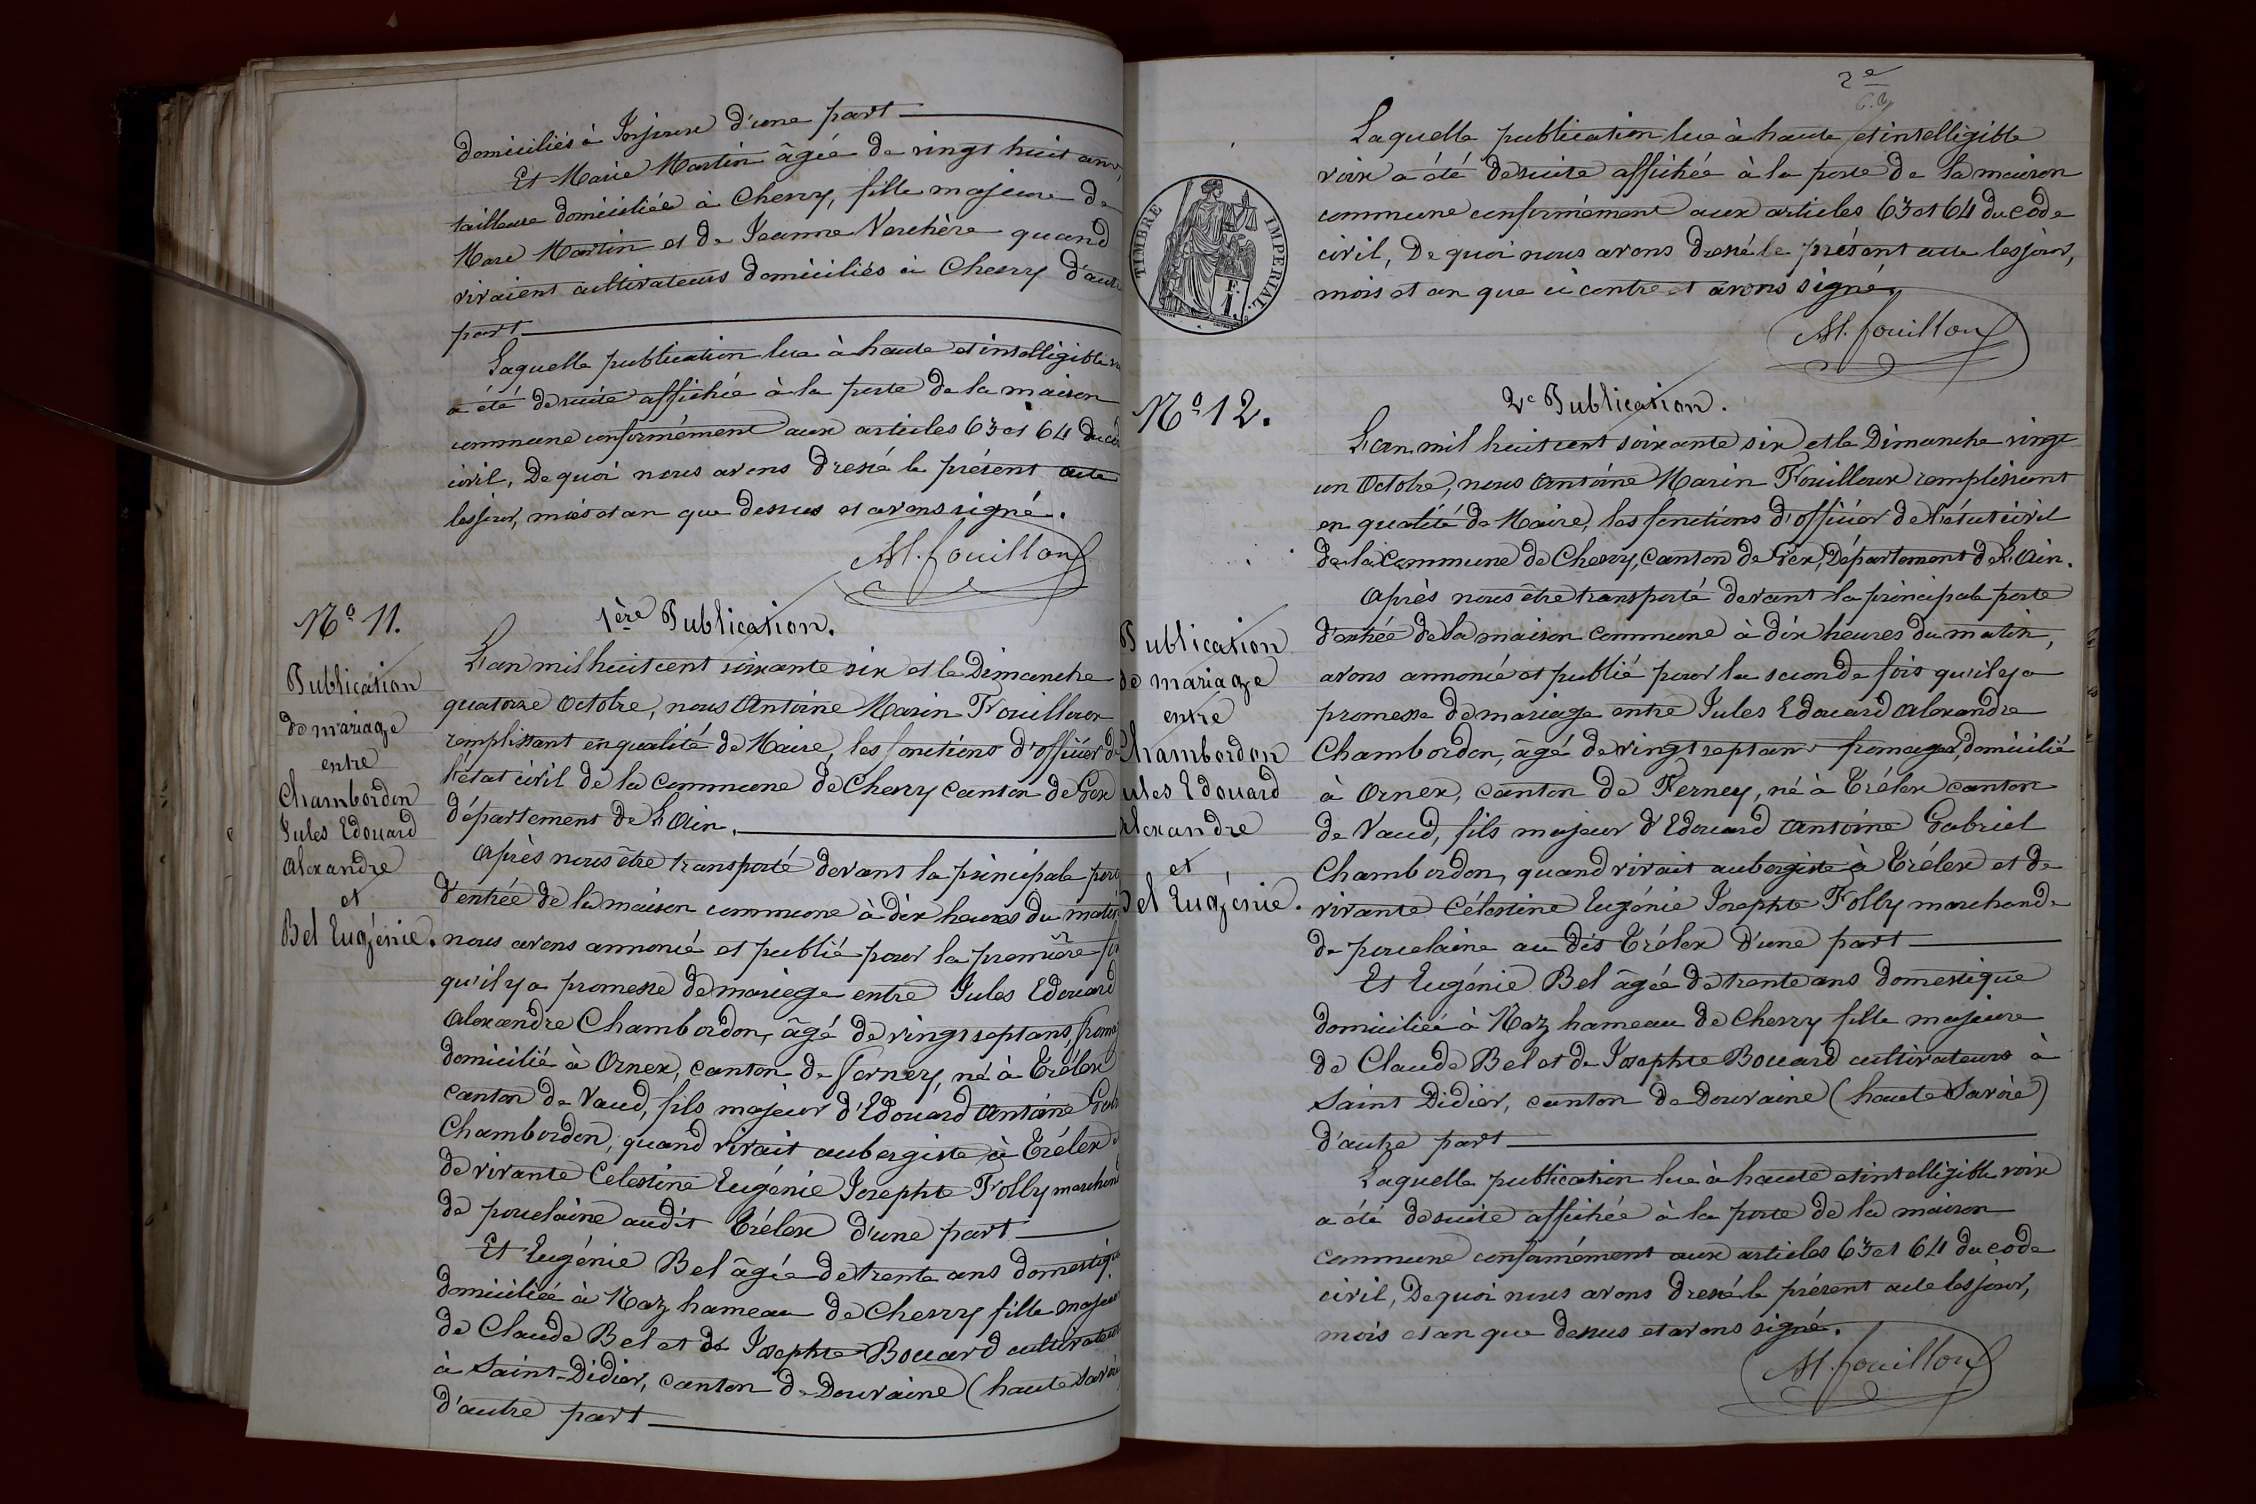 domiciliés à d'une part
Et Marie Martin âgée de vingt huit ans,
tailleuse domiciliée à Chevry, fille majeure de
Marc Martin et de Jeanne Verchère quand
vivaient cultivateurs domiciliés à Chevry d'autre
part
Laquelle publication lue à haute et intelligible
a été desuite affichée à la porte de la maison
commune conformément aux articles 63 et 64 du
civil, De quoi nous avons dressé le présent acte
les jour, mois et an que dessus et avons signé.
AM. fouilloux
No 11.
Publication
de mariage
entre
Chambordon
Jules Edouard
Alexandre
et
Bel Eugénie.
1ère Publication.
L'an mil huit cent soixante six et le Dimanche
quatorze Octobre, nous Antoine Marin Fouilloux
remplissant en qualité de Maire, les fonctions d'officier de
l'état civil de la Commune de Chevry canton de Gex
département de L'Ain.
Après nous être transporté devant la principale porte
d'entrée de la maison commune à dix heures du matin
nous avons annoncé et publié pour la première fois
qu'il y a promesse de mariage entre Jules Edouard
Alexandre Chambordon, âgé de vingt sept ans,
domicilié à Ornex, canton de ferney, né à Trélex
canton de Vaud, fils majeur d'Edouard Antoine
Chambordon, quand vivait aubergiste à Trélex et
de vivante Célestine Eugénie Josephte Folly
de porcelaine audit Trélex d'une part
Et Eugénie Bel âgée de trente ans
domiciliée à Naz hameau de Chevry fille majeure
de Claude Bel et de Josephte Bouard cultivateurs
à Saint-Didier, canton de Douvaine (haute Savoie
d'autre part
2e
Laquelle publication lue à haute et intelligible
voix a été desuite affichée à la porte de la maison
commune conformément aux articles 63 et 64 du code
civil, De quoi nous avons dressé le présent acte les jour,
mois et an que ci contre et avons signé.
AM. fouilloux
TIMBRE IMPERIAL.
F.
1.
No 12.
Publication
de mariage
entre
Chambordon
Jules Edouard
Alexandre
et
Bel Eugénie.
2e Publication.
L'an mil huit cent soixante six et le Dimanche vingt
un Octobre, nous Antoine Marin Fouilloux remplissant
en qualité de Maire, les fonctions d'officier de l'état civil
de la Commune de Chevry, Canton de Gex, Département de L'Ain.
Après nous être transporté devant la principale porte
d'entrée de la maison commune à dix heures du matin,
avons annoncé et publié pour la seconde fois qu'il y a
promesse de mariage entre Jules Edouard Alexandre
Chambordon, âgé de vingt sept ans fromager, domicilié
à Ornex, canton de Ferney, né à Trélex canton
de Vaud, fils majeur d'Edouard Antoine Gabriel
Chambordon, quand vivait aubergiste à Trélex et de
vivante Célestine Eugénie Josephte Folly marchande
de porcelaine au dit Trélex d'une part
Et Eugénie Bel âgée de trente ans domestique
domiciliée à Naz hameau de Chevry fille majeure
de Claude Bel et de Josephte Bouard cultivateurs à
Saint Didier, canton de Douvaine (haute Savoie)
d'autre part
Laquelle publication lue à haute et intelligible voix
a été desuite affichée à la porte de la maison
commune conformément aux articles 63 et 64 du code
civil, De quoi nous avons dressé le présent acte les jour,
mois et an que dessus et avons signé.
AM. fouilloux